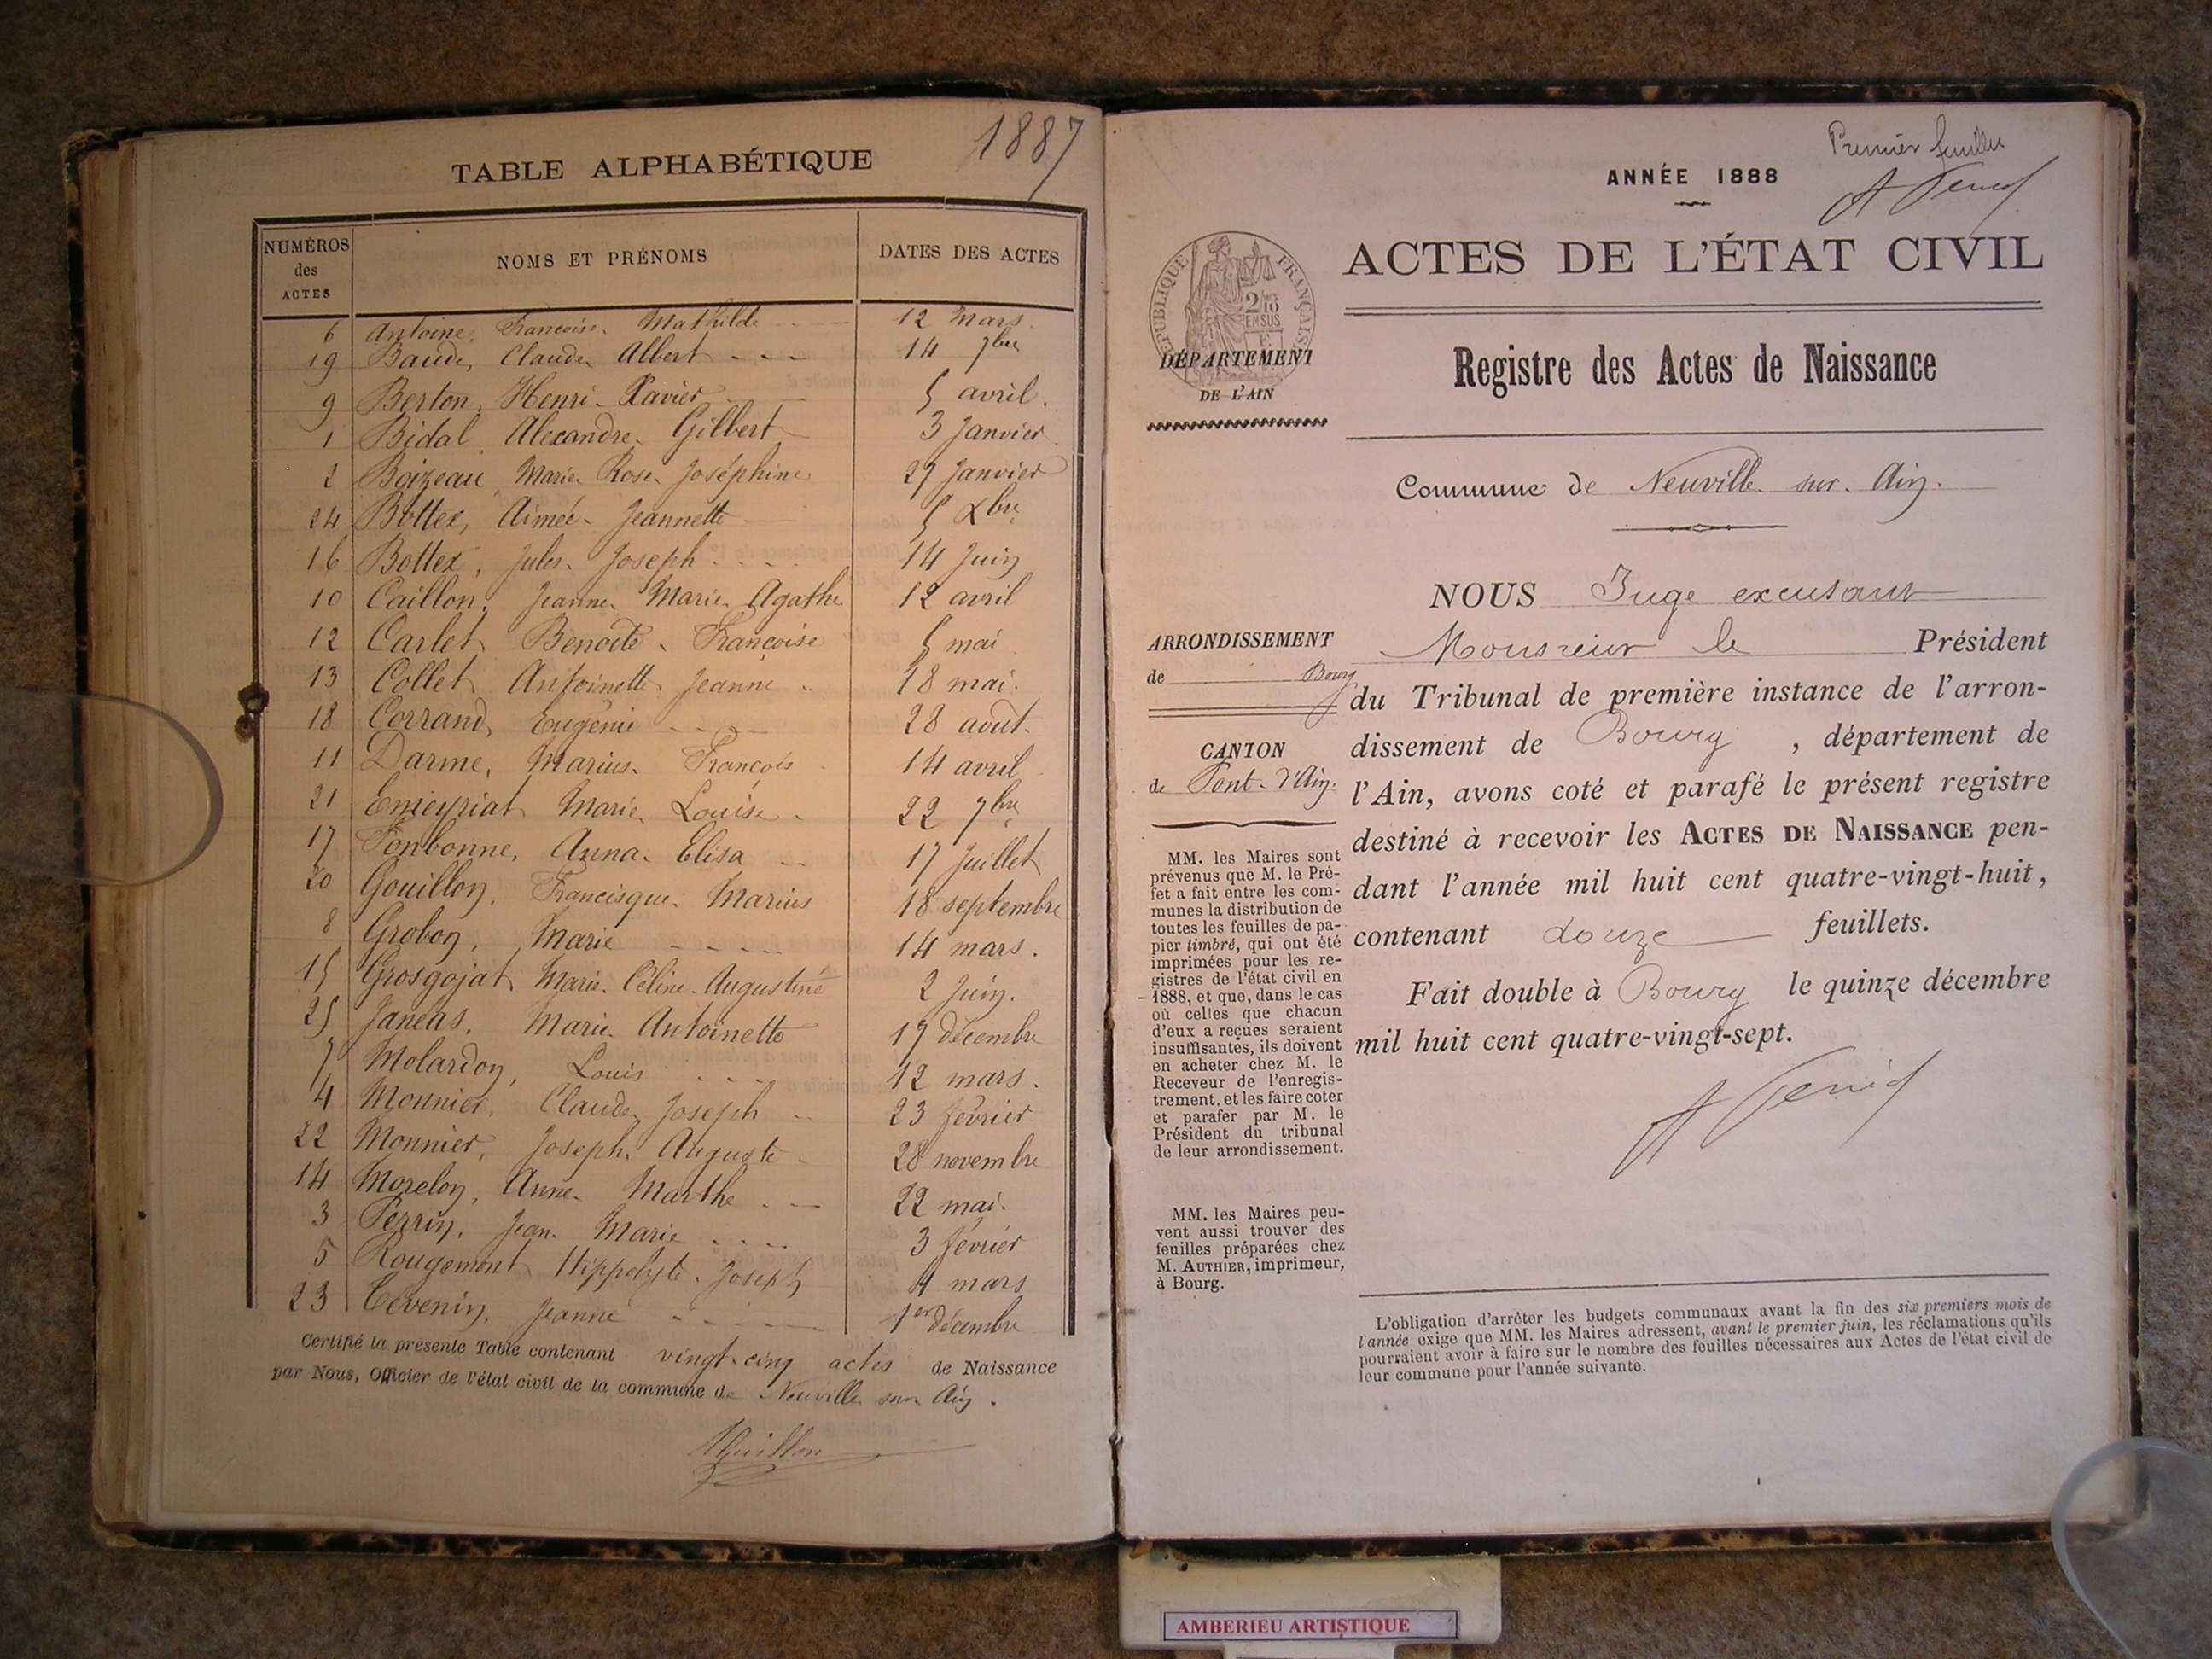 1887
TABLE ALPHABÉTIQUE
NUMÉROS des ACTES NOMS ET PRÉNOMS DATES DES ACTES
6 Antoine, Françoise, Mathilde 12 mars
19 Baude, Claude Albert 14 7bre
9 Berton, Henri Xavier 5 avril.
1 Bidal, Alexandre Gilbert 3 Janvier
2 Boizeau Marie Rose Joséphine 27 Janvier
24 Bottex, Aimée Jeannette 5 Xbre
16 Bottex, Jules Joseph 14 Juin
10 Caillon, Jeanne Marie Agathe 12 avril
12 Carlet Benoîte Françoise 5 mai
13 Collet Antoinette Jeanne 18 mai.
18 Corrand, Eugénie 28 août.
11 Darme, Marius François 14 avril
21 Emeyriat Marie Louise 22 7bre
17 Fonbonne, Anna Elisa 17 Juillet
20 Gouillon, Francisque Marius 18 septembre
8 Grobon, Marie 14 mars.
15 Grosgojat Marie Céline Augustine 2 Juin.
25 Janéas, Marie Antoinette 17 décembre
7 Molardon, Louis 12 mars.
4 Monnier, Claude Joseph 23 février
22 Monnier, Joseph Auguste 28 novembre
14 Morelon, Anne Marthe 22 mai.
3 Perrin, Jean Marie 3 février
5 Rougemont Hippolyte Joseph 4 mars
23 Tévenin, Jeanne 1er décembre
Certifié la présente Table contenant vingt-cinq actes de Naissance
par Nous, Officier de l'état civil de la commune de Neuville sur Ain.
Premier feuillet
ANNÉE 1888
RÉPUBLIQUE FRANÇAISE
2/10
EN SUS
ACTES DE L'ÉTAT CIVIL
DÉPARTEMENT
DE L'AIN
Registre des Actes de Naissance
Commune de Neuville sur Ain.
NOUS Juge excusant
ARRONDISSEMENT
de Bourg
Monsieur le Président
du Tribunal de première instance de l'arron-
dissement de Bourg, département de
l'Ain, avons coté et parafé le présent registre
destiné à recevoir les ACTES DE NAISSANCE pen-
dant l'année mil huit cent quatre-vingt-huit,
contenant douze feuillets.
Fait double à Bourg le quinze décembre
mil huit cent quatre-vingt-sept.
CANTON
de Pont-d'Ain.
MM. les Maires sont
prévenus que M. le Pré-
fet a fait entre les com-
munes la distribution de
toutes les feuilles de pa-
pier timbré, qui ont été
imprimées pour les re-
gistres de l'état civil en
1888, et que, dans le cas
où celles que chacun
d'eux a reçues seraient
insuffisantes, ils doivent
en acheter chez M. le
Receveur de l'enregis-
trement, et les faire coter
et parafer par M. le
Président du tribunal
de leur arrondissement.
MM. les Maires peu-
vent aussi trouver des
feuilles préparées chez
M. AUTHIER, imprimeur,
à Bourg.
L'obligation d'arrêter les budgets communaux avant la fin des six premiers mois de
l'année exige que MM. les Maires adressent, avant le premier juin, les réclamations qu'ils
pourraient avoir à faire sur le nombre des feuilles nécessaires aux Actes de l'état civil de
leur commune pour l'année suivante.
AMBERIEU ARTISTIQUE